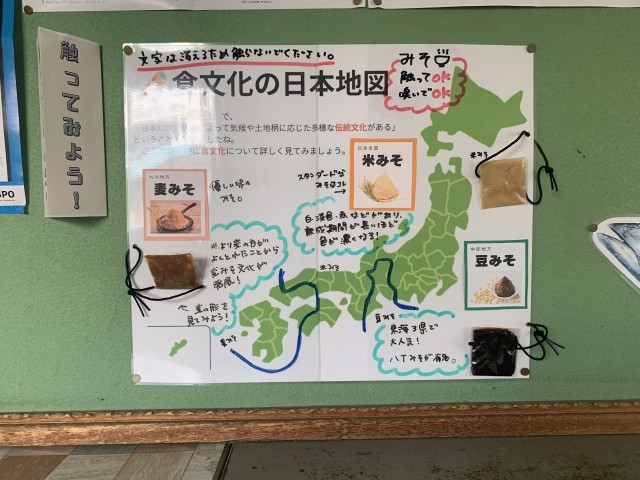 触ってみよう!
文字は消えるため触らないでください。
食文化の日本地図
みそ
触ってOK
嗅いでOK
で、
気候や土地柄に応じた多様な伝統文化がある」
食文化について詳しく見てみましょう。
九州地方
麦みそ
優しい味の
みそ。
日本全国
米みそ
スタンダードな
みそはコレ
→
白・淡色・赤などがあり、
熟成期間が長いほど
色が濃くなる!
米みそ
中部地方
豆みそ
米より麦の方が
よくとれたことから
麦みそ文化が
発展!
見てみよう!
米みそ
豆みそ
麦みそ
東海3県で
大人気!
八丁みそが有名。
PO